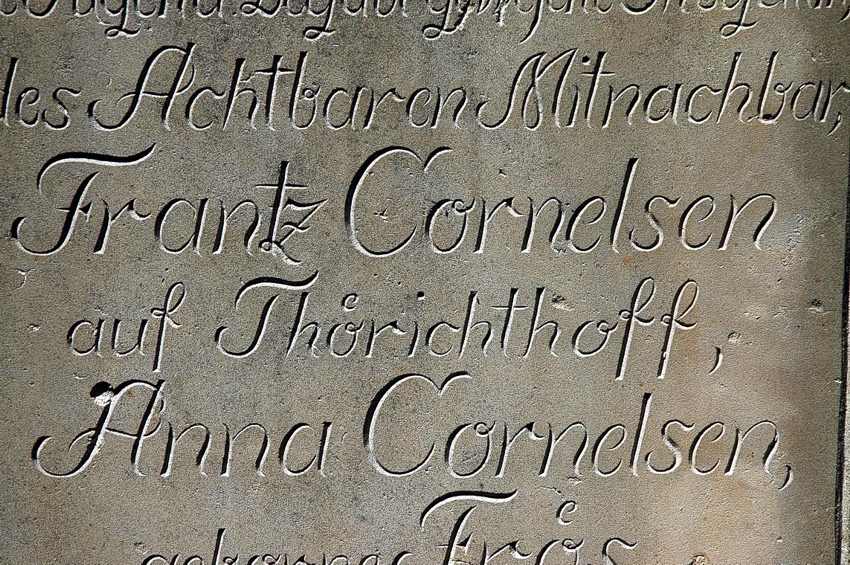 des Achtbaren Mitnachbar,
Frantz Cornelsen
auf Thoͤrichthoff,
Anna Cornelsen,
geborne Froͤs